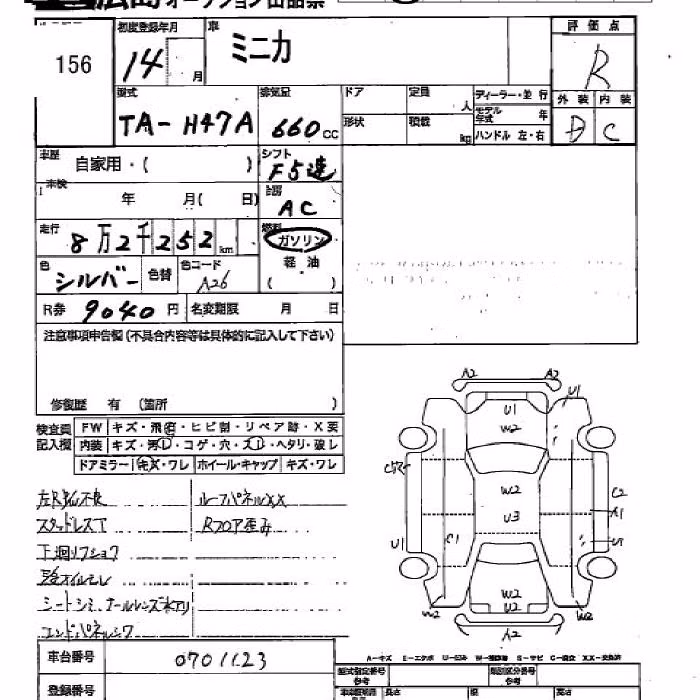 広島 オークション出品票
156
初度登録年月
14 月
車
ミニカ
評価点
R
型式
TA-H47A
排気量
660 CC
ドア
定員 人
形状
積載 kg
ディーラー・並行
モデル年式 年
ハンドル 左・右
外装 内装
D C
車歴 自家用・( )
シフト
F5速
車検 年 月( 日)
冷房
AC
走行
8万2千252 km
燃料
ガソリン
軽油
( )
色
シルバー
色替
色コード
A26
R券 9040 円
名変期限 月 日
注意事項申告欄(不具合内容等は具体的に記入して下さい)
修復歴 有 (箇所 )
検査員記入欄
FW キズ・飛石・ヒビ割・リペア跡・X要
内装 キズ・汚レ・コゲ・穴・スレ・ヘタリ・破レ
ドアミラー キズ・ワレ ホイール・キャップ キズ・ワレ
ルーフパネルXX
スタッドレスT
Rフロア歪み
下廻リフショク
A2 A2
U1 U1
W2
W2
U3
C2
A1
U1 C1
W2
U2
W2 W2
A2
A-キズ E-エクボ U-凹み W-補修跡 S-サビ C-腐食 XX-交換済
車台番号 0701123
登録番号
型式指定番号 参考
類別区分番号 参考
長さ 幅 高さ